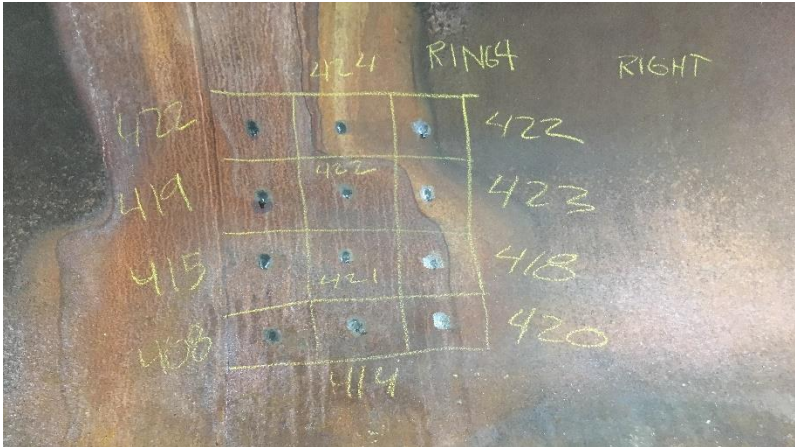 424 RING4 RIGHT
422 422
422
419 423
415 418
421
408 420
414